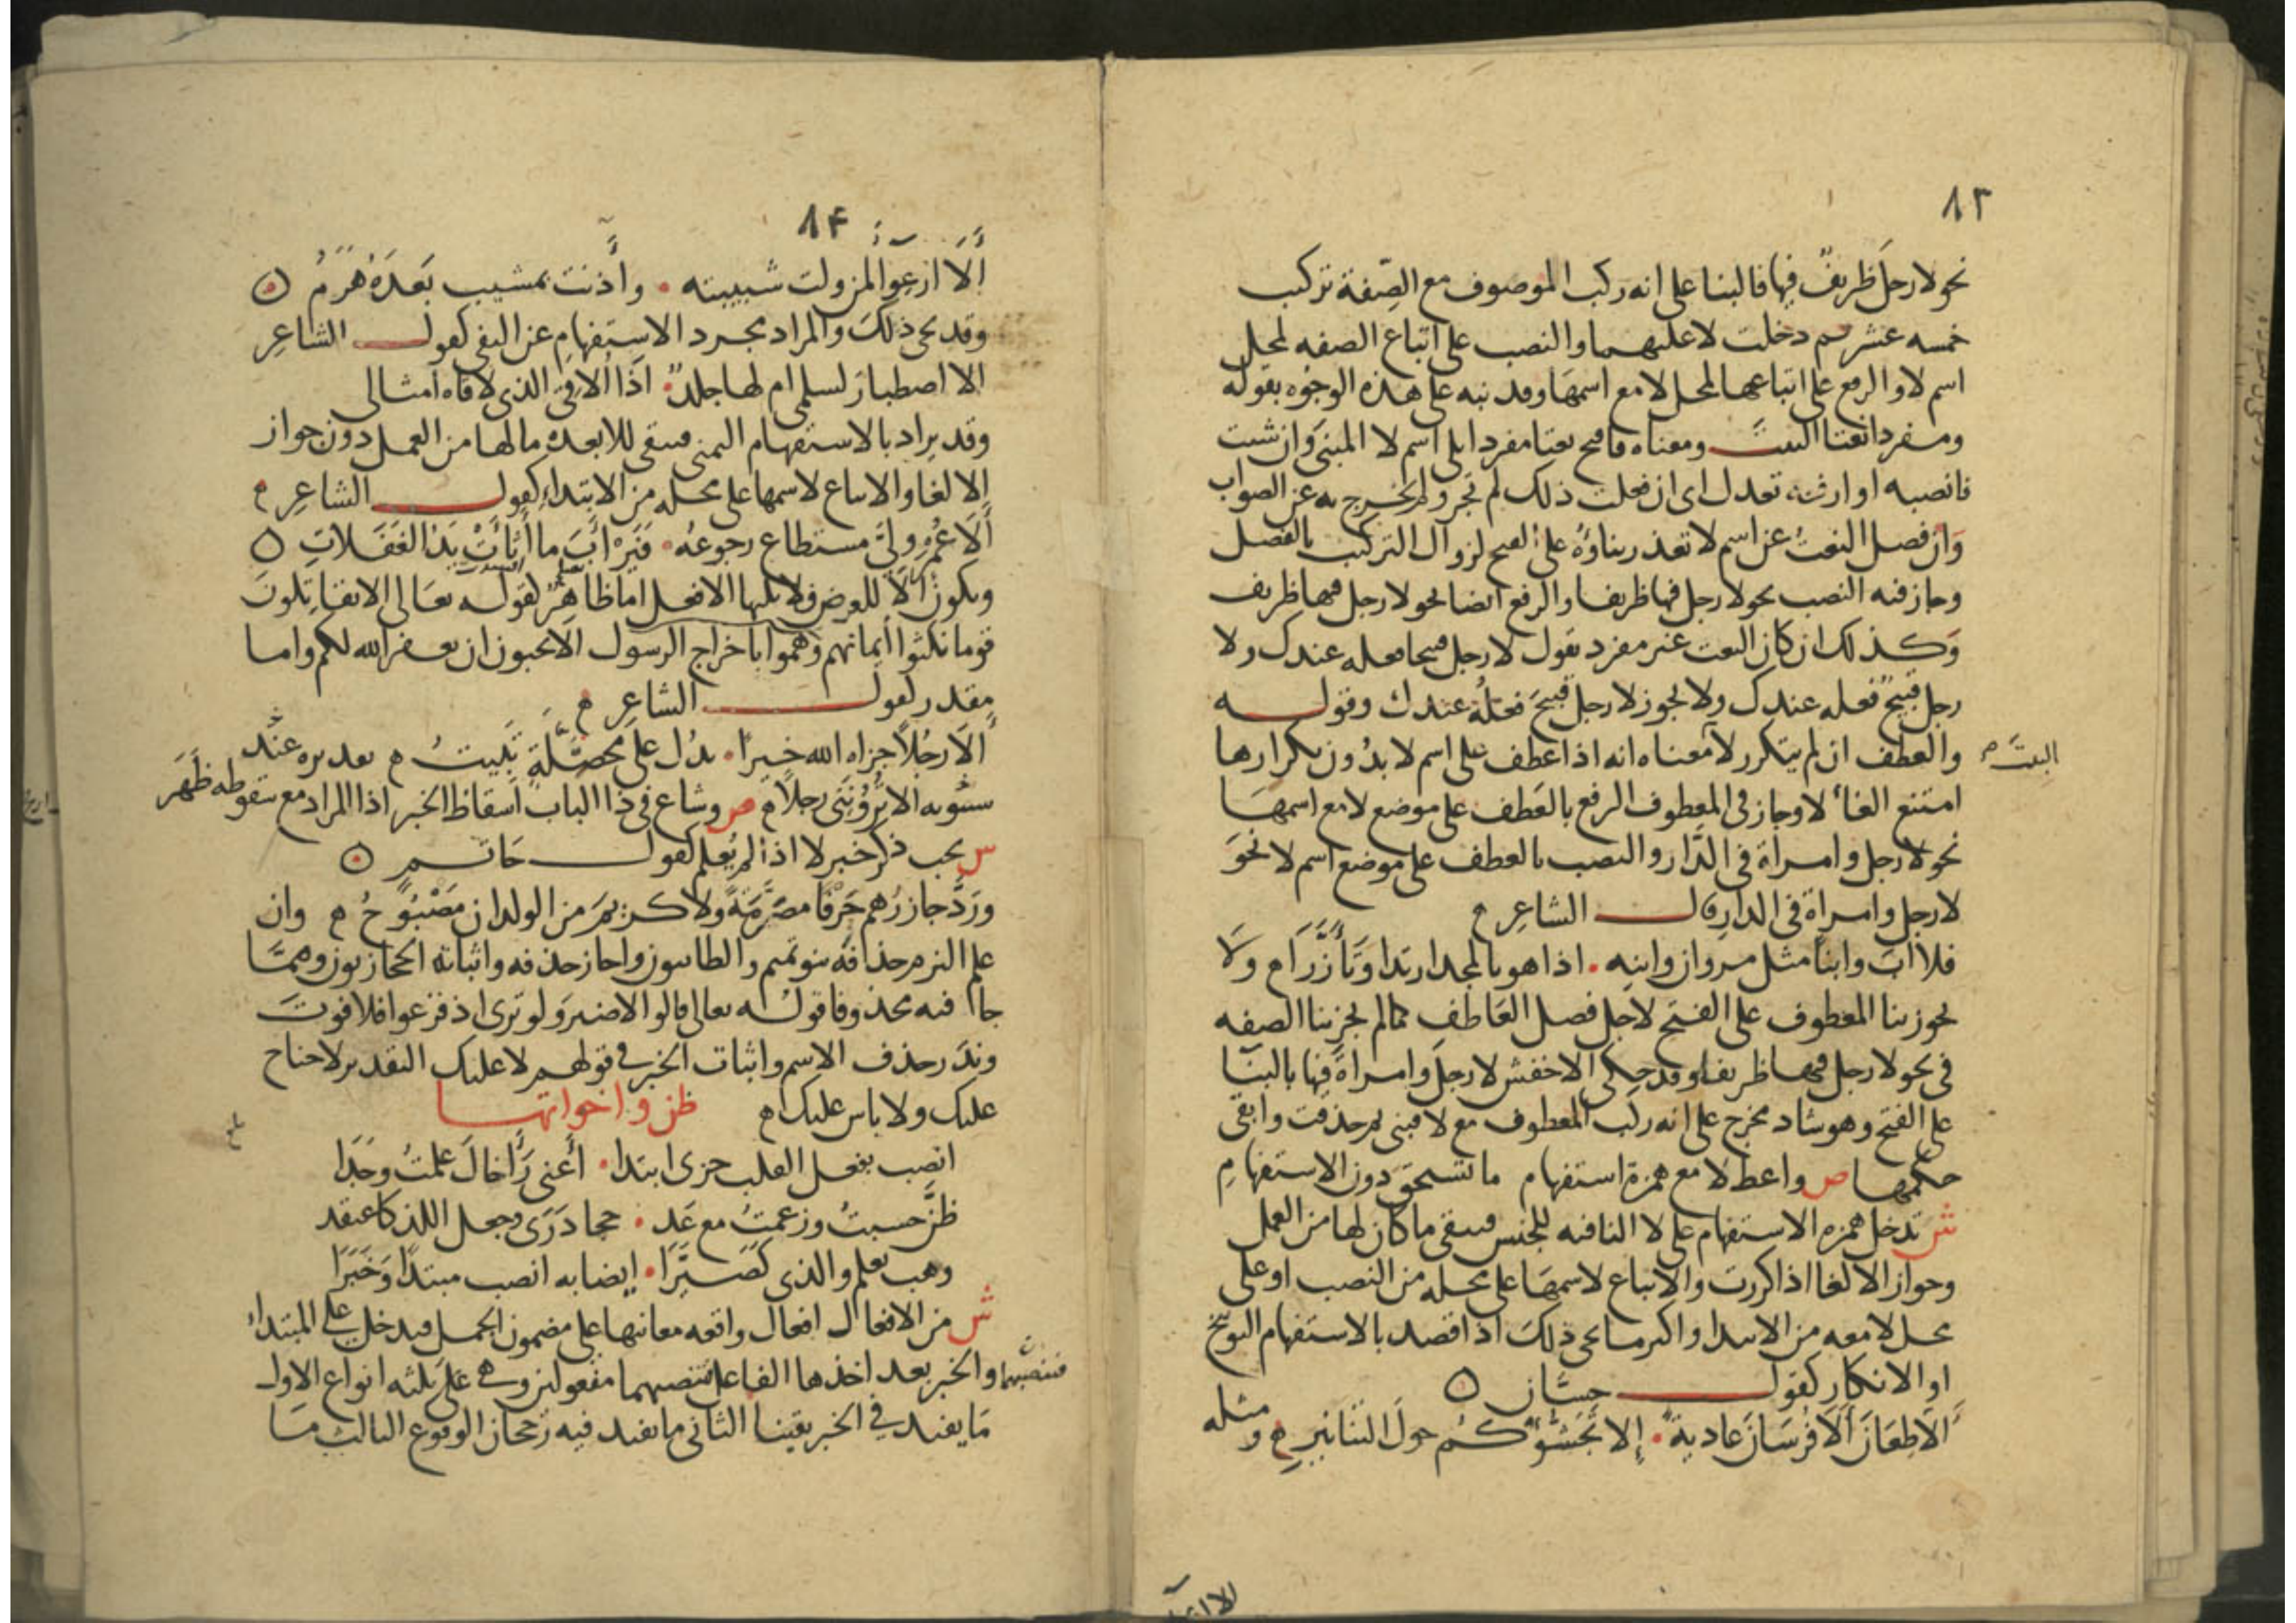 ٨٣
نحو لا رجلَ ظريفَ فيها فالبنا على انه ركب الموصوف مع الصّفة تركب
خمسه عشر ثم دخلت لا عليهما والنصب على اتباع الصفه لمحل
اسم لا والرفع على اتباعها لمحل لا مع اسمها وقد نبه على هذه الوجوه بقوله
ومفردا نعتا البيت ومعناه فافتح نعتا مفردا يلي اسم لا المبني وان شيت
فانصبه او ارفعه تعدل اى ان فعلت ذلك لم تجر ولم تخرج به عن الصواب
وان فصل النعتُ عن اسم لا تعذر بناؤهُ على الفتح لزوال التركيب بالفصل
وجاز فيه النصب نحو لا رجل فيها ظريفا والرفع ايضا نحو لا رجل فيها ظريف
وكذلك ان كان النعت غير مفرد تقول لا رجل قبيحا فعله عندك ولا
رجل قبيحٌ فعله عندك ولا يجوز لا رجل قبيحَ فعلهُ عندك وقوله
والعطف ان لم يتكرر لا معناه انه اذا عطف على اسم لا بدُون تكرارها
البيتَ
امتنع الغاء لا وجاز في المعطوف الرفع بالعَطف على موضع لا مع اسمها
نحو لا رجل وامراة في الدَّار والنصب بالعطف على موضع اسم لا نحوَ
لا رجل وامراةً في الدار قال الشاعِر
فلا ابَ وابنًا مثل مروان وابنِه ۰ اذا هو بالمجد ارتدا وتَأَزَّرَا م ولَا
يجوز بنا المعطوف على الفتح لاجل فصل العَاطف كما لم يجز بنا الصفه
في نحو لا رجل فيها ظريفا وقد حكى الاخفش لا رجلَ وامراةَ فيها بالبنَا
على الفتح وهو شاذ مخرج على انه ركب المعطوف مع لا فبنى ثم حذفت وابقى
حكمها ص واعط لا مع همزة استفهام ما تستحق دون الاستفهامِ
ش تدخل همزه الاستفهام على لا النافيه للجنس فيبقى ما كان لها من العمل
وجواز الالغا اذا كررت والاتباع لاسمها على محله من النصب او على
محل لا معه من الابتدا واكثر ما يجى ذلك اذا قصد بالاستفهام التوبيخ
او الانكار كقول حسَّان
أَلَا طِعَانَ أَلَا فُرسَانَ عاديةً ۰ إِلا تَجَشُّؤُكُم حولَ التنانيرِ م ومثله
٨۴
أَلَا ارْعِوَاءَ لمن ولت شبيبته ۰ وأَذنت بمشيب بَعدَهُ هَرَمُ
وقد يجى ذلك والمراد مجرد الاستفهام عن النفى كقول الشاعِر
الا اصطبارَ لسلمى ام لها جلدٌ ۰ اذًا أُلاقى الذى لاقاه امثالى
وقد يراد بالاستفهام التمنى فيبقى للا بعده ما لها من العمل دون جواز
الالغا والاتباع لاسمها على محله من الابتداءِ كقول الشاعِرِ م
أَلَا عُمْرَ ولىَّ مستطاع رجوعُهُ ۰ فَيَرْأَبَ ما أَثْأَتْ يَدُ الغَفَلاتِ
ويكون أَلَا للعرض فلا يليها الا فعل اما ظاهرٌ كقوله تعالى الا تقاتِلونَ
قوما نكثوا أَيمانهم وَهموا باخراج الرسول أَلَا تحبون ان يغفر الله لكم واما
مقدر كقول الشاعِرِ م
أَلَا رجُلًا جزاه الله خيرًا ۰ يدُل على محصِّلَةٍ تَبِيتُ م تقديره عند
سيبويه الا تُرُونَنَى رجلًا م ص وشاع في ذا الباب اسقاط الخبر اذا المراد مع سقوطه ظَهَرَ
س يجب ذكر خبر لا اذا لم يُعلم كقول حَاتم
ورَدَّ جازرُهم حَرْفًا مصَرَّمَةً ولا كريمَ من الولدان مَصْبُوحُ م وان
علم التزم حذفهُ بنو تميم والطائيون واجاز حذفه واثباته الحجازيون وممَّا
جاا فيه محذوفا قوله تعالى قالوا لا ضير ولو ترى اذ فزعوا فلا فوتَ
وندَر حذف الاسم واثبات الخبر في قولهم لا عليك التقدير لا جناح
عليك ولا باس عليك م ظن واخواتها
انصب بفعل القلب جزئ ابتدا ۰ أَعنى رَأَى خالَ علمتُ وجَدَا
ظنَّ حسبتُ وزعمتُ مع عَد ۰ حجا دَرَى وجعل اللذ كاعتقد
وهب تعلم والذي كَصَيَّرَا ۰ ايضا به انصب مبتدًا وَخَبَرَا
ش من الافعال افعال واقعه معانيها على مضمون الجمل فيدخل على المبتداء
والخبر بعد اخذها الفاعل فتنصبهما مفعولين وهى على ثلثه انواع الاول
فتنصبهما
مَا يفيد في الخبر يقينا الثاني ما يفيد فيه رُجحان الوقوع الثالث مَا